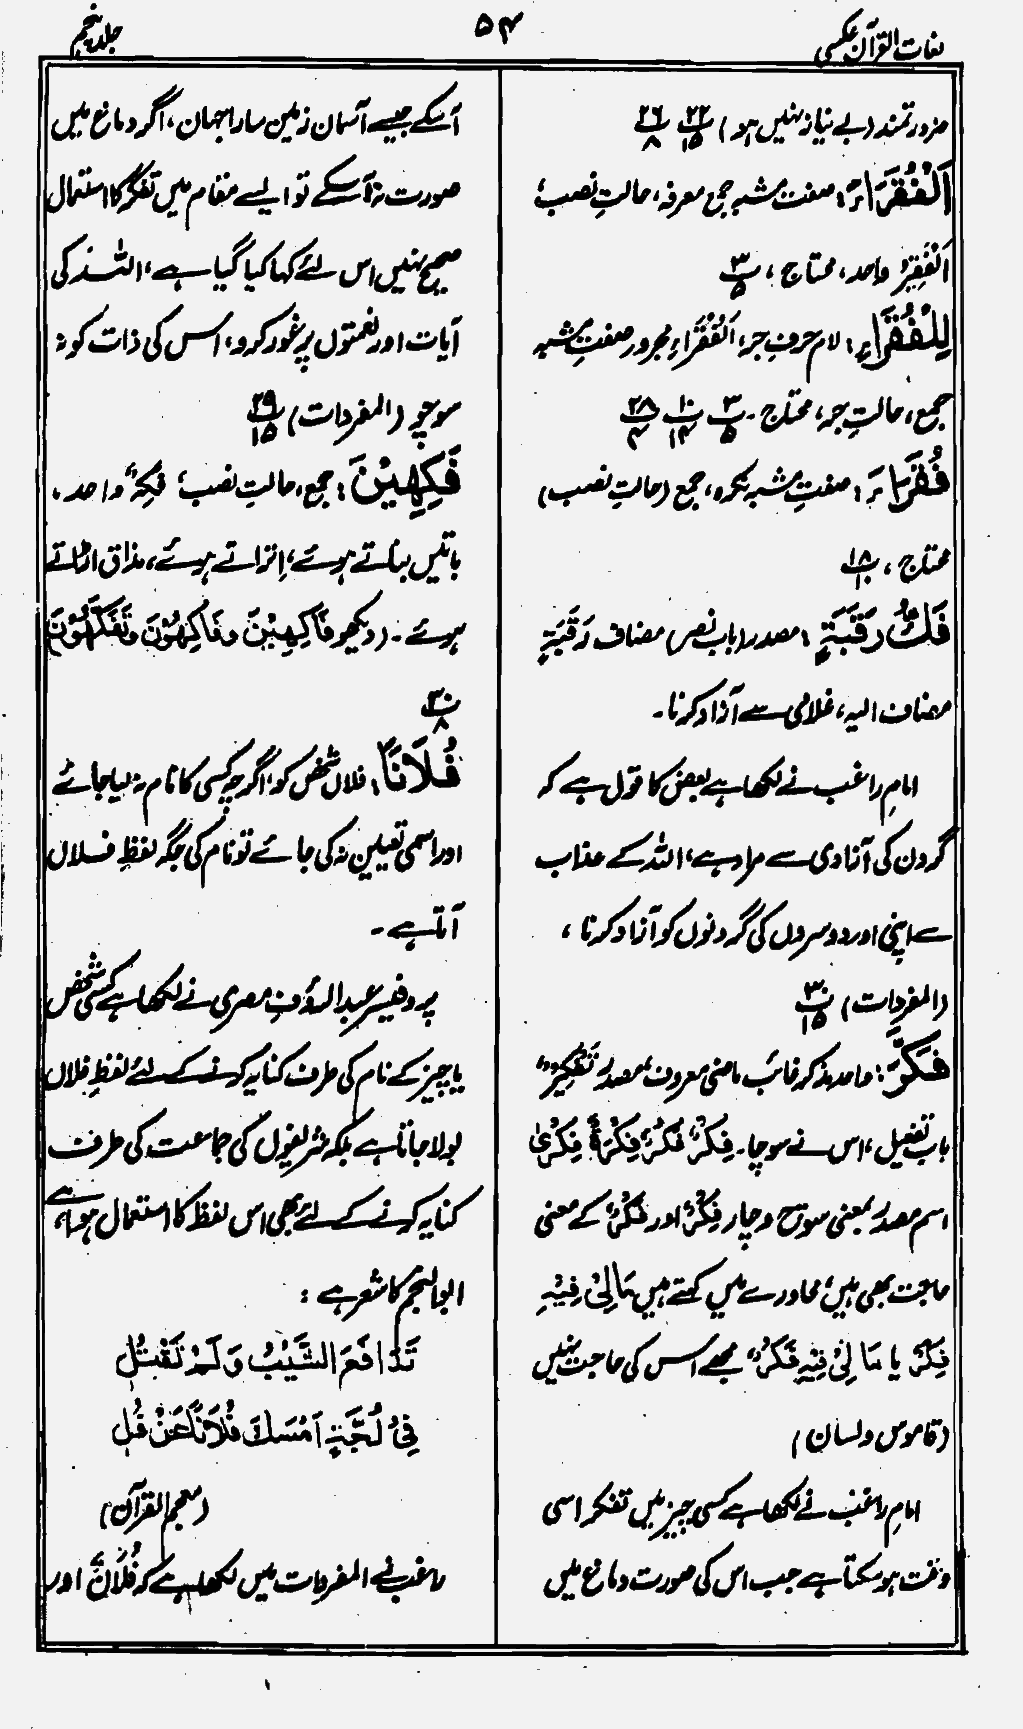 لغات القرآن عکسی
۵۴
جلد پنجم
ضرورتمند (بے نیاز نہیں ہو) ۲۲/۱۵ ۲۶/۸
اَلْفُقَرَاءَ: صفت مشبہ جمع معرفہ، حالتِ نصب،
اَلْفَقِیْرُ واحد، محتاج ، ۳/۵
لِلْفُقَرَاءِ: لام حرفِ جر، اَلْفُقَرَاءِ مجرور صفتِ مشبہ
جمع، حالتِ جر، محتاج۔ ۳/۵ ۱۰/۱۴ ۲۸/۴
فُقَرَاءَ: صفتِ مشبہ نکرہ، جمع (حالتِ نصب)
محتاج ، ۱۸/۱۰
فَكُّ رَقَبَةٍ: مصدر (باب نصر) مضاف رَقَبَةٍ
مضاف الیہ، غلامی سے آزاد کرنا۔
امامِ راغب نے لکھا ہے بعض کا قول ہے کہ
گردن کی آزادی سے مراد ہے، اللہ کے عذاب
سے اپنی اور دوسروں کی گردنوں کو آزاد کرنا ،
(المفردات) ۳۰/۱۵
فَكَّرَ: واحد مذکر غائب ماضی معروف، مصدر تَفْكِیْرٌ،
باب تفعیل، اس نے سوچا۔ فِكْرٌ، فَكْرٌ، فِكْرَةٌ، فِكْرٰی
اسم مصدر بمعنی سوچ وچار فِكْرٌ، اور فَكْرٌ، کے معنی
حاجت بھی ہیں، محاورے میں کہتے ہیں مَا لِیْ فِیْهِ
فِكْرٌ یا مَا لِیْ فِیْهِ فَكْرٌ، مجھے اس کی حاجت نہیں
(قاموس ولسان)
امامِ راغب نے لکھا ہے کسی چیز میں تفکر اسی
وقت ہو سکتا ہے جب اس کی صورت دماغ میں
آسکے جیسے آسمان زمین سارا جہان، اگر دماغ میں
صورت نہ آسکے تو ایسے مقام میں تفکر کا استعمال
صحیح نہیں اس لئے کہا گیا ہے، اللہ کی
آیات اور نعمتوں پر غور کرو، اس کی ذات کو نہ
سوچو (المفردات) ۲۹/۱۵
فَكِهِیْنَ: جمع، حالتِ نصب، فَكِهٌ، واحد،
باتیں بناتے ہوئے، اِتراتے ہوئے، مذاق اڑاتے
ہوئے۔ (دیکھو فَاكِهِیْنَ وفَاكِهُوْنَ وتَفَكَّهُوْنَ)
۳۰/۸
فُلَانًا: فلاں شخص کو، اگرچہ کسی کا نام نہ لیا جائے
اور اسمی تعیین نہ کی جائے تو نام کی جگہ لفظِ فلاں
آتا ہے۔
پروفیسر عبدالرؤفِ مصری نے لکھا ہے کسی شخص
یا چیز کے نام کی طرف کنایہ کرنے کے لئے لفظِ فلاں
بولا جاتا ہے بلکہ شریفوں کی جماعت کی طرف
کنایہ کرنے کے لئے بھی اس لفظ کا استعمال ہوتا ہے،
ابوالنجم کا شعر ہے :
تَدَافَعَ الشَّیْبُ وَلَمْ تَقْتُلِ
فِیْ لُجَّةٍ اَمْسَكَ فُلَانًا عَنْ فُلِ
(معجم القرآن)
راغب نے المفردات میں لکھا ہے کہ فُلَانٌ اور